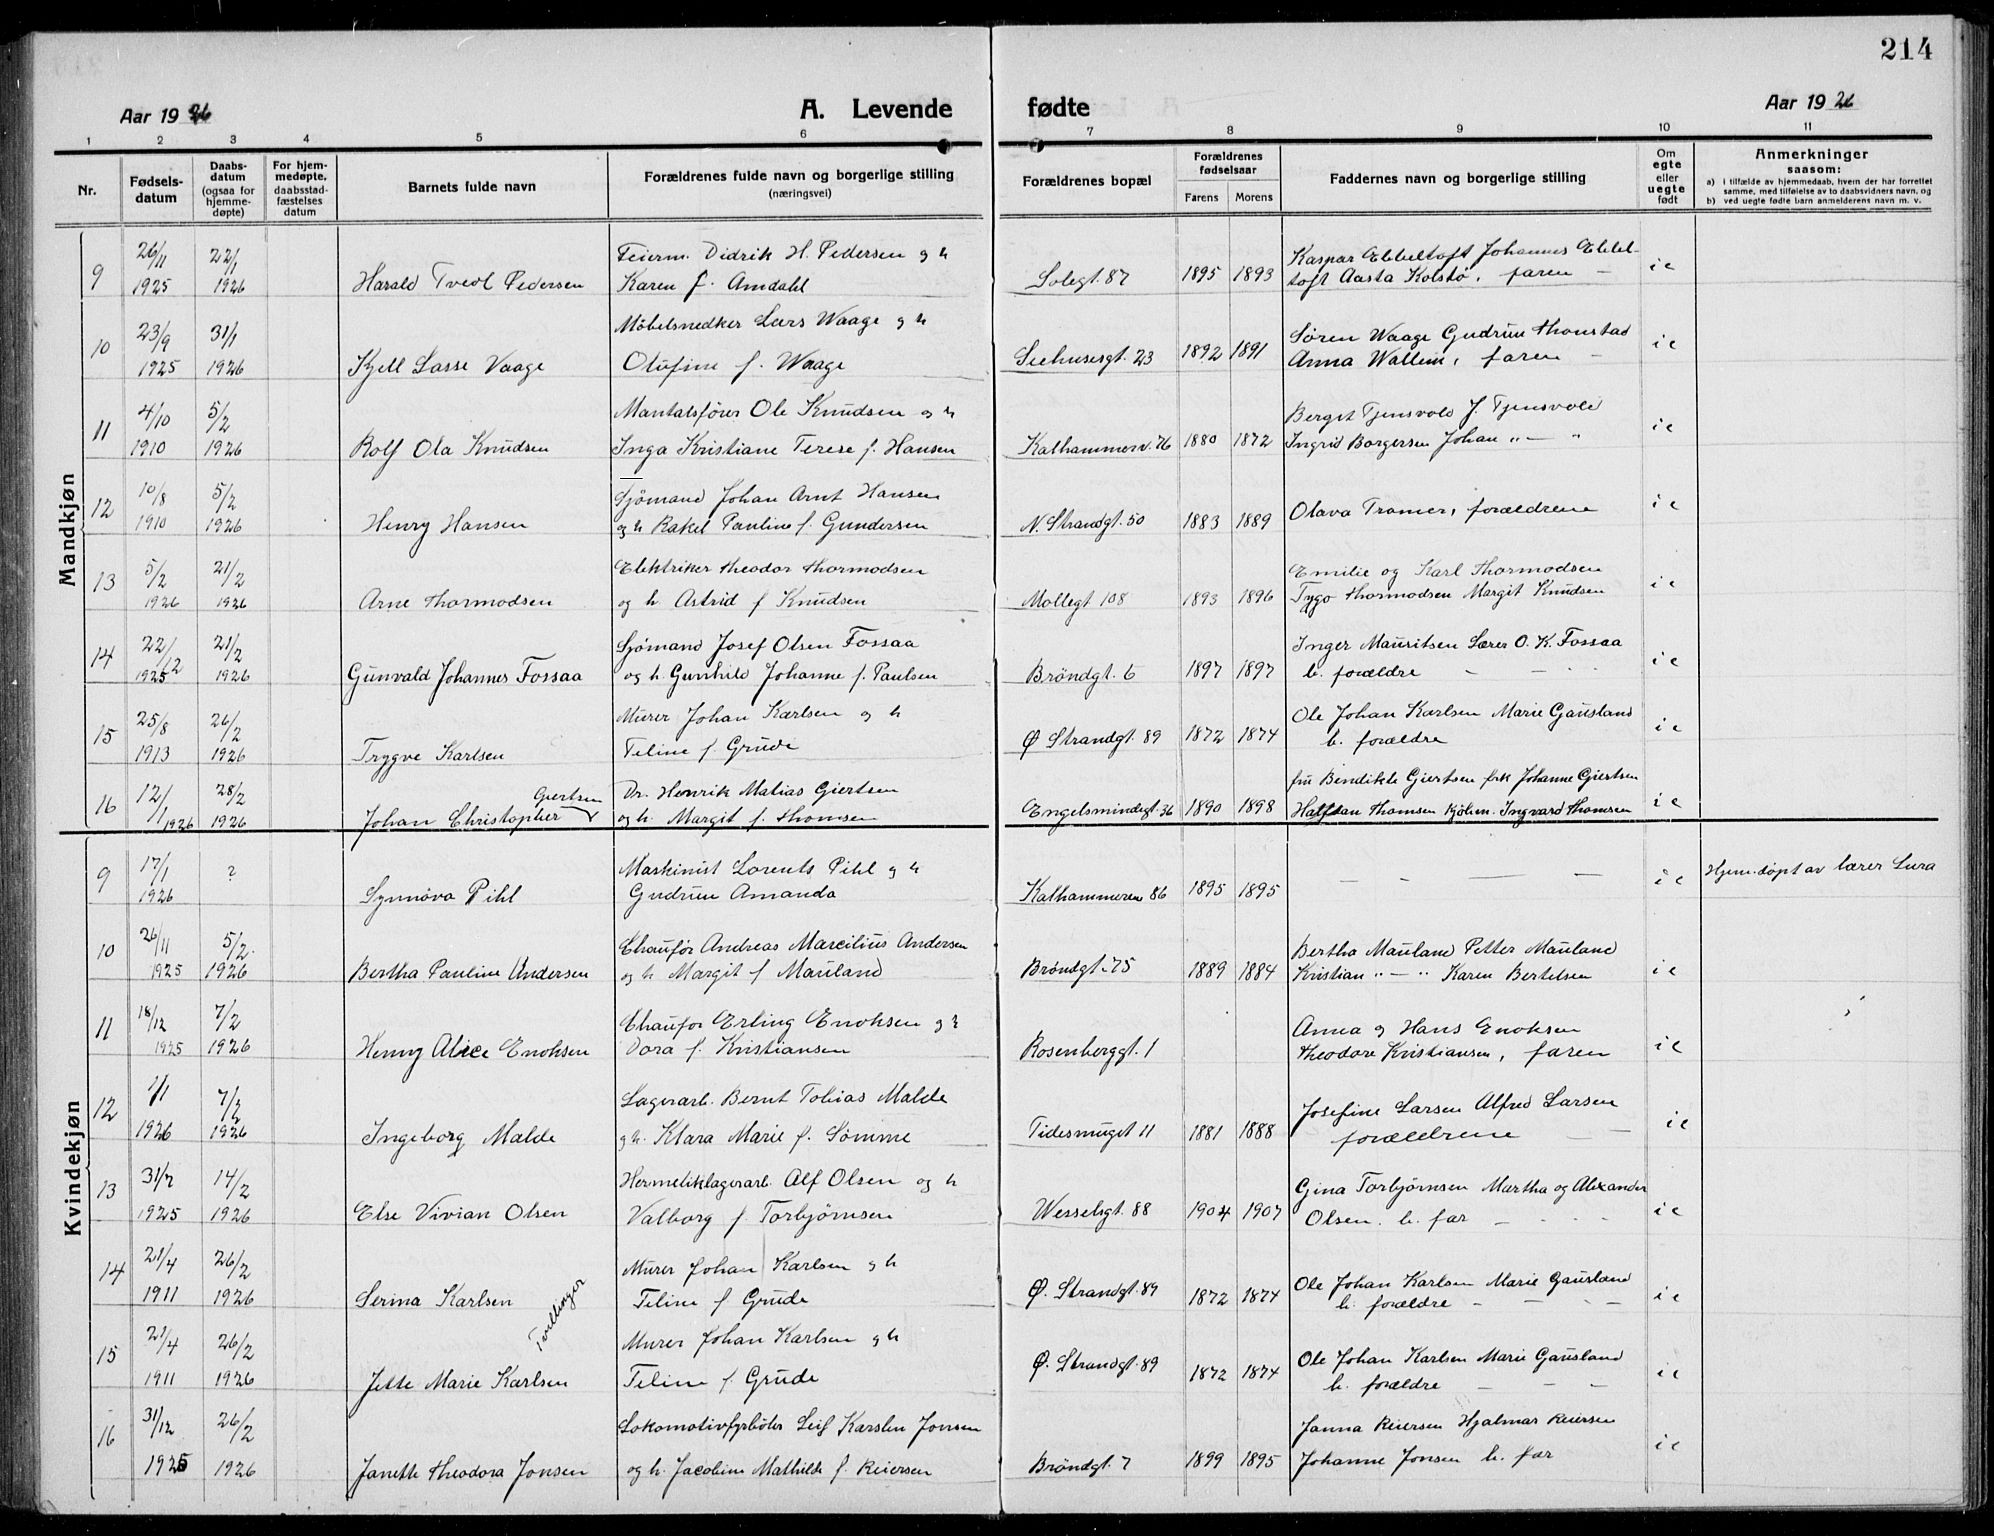 214
Aar 1926 A. Levende fødte Aar 1926
1 2 3 4 5 6 7 8 9 10 11
Nr. Fødsels-datum Daabs-datum (ogsaa for hjemme-døpte) For hjem-medøpte, daabsstad-fæstelses datum Barnets fulde navn Forældrenes fulde navn og borgerlige stilling (næringsvei) Forældrenes bopæl Forældrenes fødselsaar Farens Morens Faddernes navn og borgerlige stilling Om egte eller uegte født Anmerkninger saasom:
a) i tilfælde av hjemmedaab, hvem der har forrettet samme, med tilføielse av to daabsvidners navn, og
b) ved uegte fødte barn anmelderens navn m. v.
Mandkjøn
26/11 22/1 Feierm. Didrik H. Pedersen og h Kaspar Ebbeltoft Johannes Ebbel-
9 1925 1926 Harald Tvedt Pedersen Karen f. Amdahl Solegt. 87 1895 1893 toft Aasta Kolstø, faren – i e
23/9 31/1 Møbelsnedker Lars Waage og h Søren Waage Gudrun Thonstad
10 1925 1926 Kjell Lasse Vaage Olufine f. Waage Seehusesgt. 23 1892 1891 Anna Wallem, faren – i e
4/10 5/2 Mantalsfører Ole Knudsen og h Berget Tjensvold J. Tjensvold
11 1910 1926 Rolf Ola Knudsen Inga Kristiane Terese f. Hansen Kalhammerv. 76 1880 1872 Ingrid Borgersen Johan " — " i e
10/8 5/2 Sjømand Johan Arnt Hansen
12 1910 1926 Henry Hansen og h Rakel Pauline f. Gundersen N. Strandgt. 50 1883 1889 Olava Tramer, forældrene i e
5/2 21/2 Elektriker Theodor Thormodsen Emilie og Karl Thormodsen
13 1926 1926 Arne Thormodsen og h. Astrid f Knudsen Møllegt 108 1893 1896 Tygo Thormodsen Margit Knudsen i e
22/12 21/2 Sjømand Josef Olsen Fossaa Inger Mauritsen Lærer O. K. Fossaa
14 1925 1926 Gunvald Johannes Fossaa og h. Gunhild Johanne f. Paulsen Brøndgt. 6 1897 1897 b. forældre – – i e
25/8 26/2 Murer Johan Karlsen og h Ole Johan Karlsen Marie Gausland
15 1913 1926 Trygve Karlsen Teline f. Grude Ø Strandgt. 89 1872 1874 b. forældre i e
12/1 28/2 Giertsen Dr. Henrik Matias Giertsen fru Bendikte Giertsen frk Johanne Giertsen
16 1926 1926 Johan Christopher og h. Margit f. Thomsen Engelsmindegt. 36 1890 1898 Halfdan Thomsen Kjøbm. Ingvard Thomsen i e
Kvindekjøn
17/1 ? Maskinist Lorents Pihl og h Hjem.døpt av lærer Lura
9 1926 Synnøva Pihl Gudrun Amanda Kalhammeren 86 1895 1895 – – – – i e
26/11 5/2 Chauffør Andreas Marcilius Andersen Bertha Mauland Petter Mauland
10 1925 1926 Bertha Pauline Andersen og h Margit f Mauland Brøndgt. 75 1889 1884 Kristian " — " Karen Bertelsen i e
18/12 7/2 Chaufør Erling Enoksen og h Anna og Hans Enoksen
11 1925 1926 Henny Alice Enoksen Dora f. Kristiansen Rosenberggt. 1 Theodore Kristiansen, faren i e
1/1 7/2 Lagerarb. Bernt Tobias Malde Josefine Larsen Alfred Larsen
12 1926 1926 Ingeborg Malde og h. Klara Marie f. Sømme Tidesmuget 11 1881 1888 forældrene – – i e
31/7 14/2 Hermetiklagerarb. Alf Olsen og h Gina Torbjørnsen Martha og Alexander
13 1925 1926 Else Vivian Olsen Valborg f. Torbjørnsen Wesselsgt. 88 1904 1907 Olsen. b. far – i e
21/4 26/2 Murer Johan Karlsen og h Ole Johan Karlsen Marie Gausland
14 1911 1926 Serina Karlsen Teline f Grude Ø. Strandgt. 89 1872 1874 b. forældre – – – – i e
Tvillinger
21/4 26/2 Murer Johan Karlsen og h Ole Johan Karlsen Marie Gausland
15 1911 1926 Jette Marie Karlsen Teline f. Grude Ø. Strandgt. 89 1872 1874 b. forældre – – – i e
31/12 26/2 Lokomotivfyrbøter Leif Karsten Jonsen Janna Reiersen Hjalmar Reiersen
16 1925 1926 Janette Theodora Jonsen og h. Jacobine Mathilde f. Reiersen Brøndgt. 7 1899 1895 Johanne Jonsen b. far i e